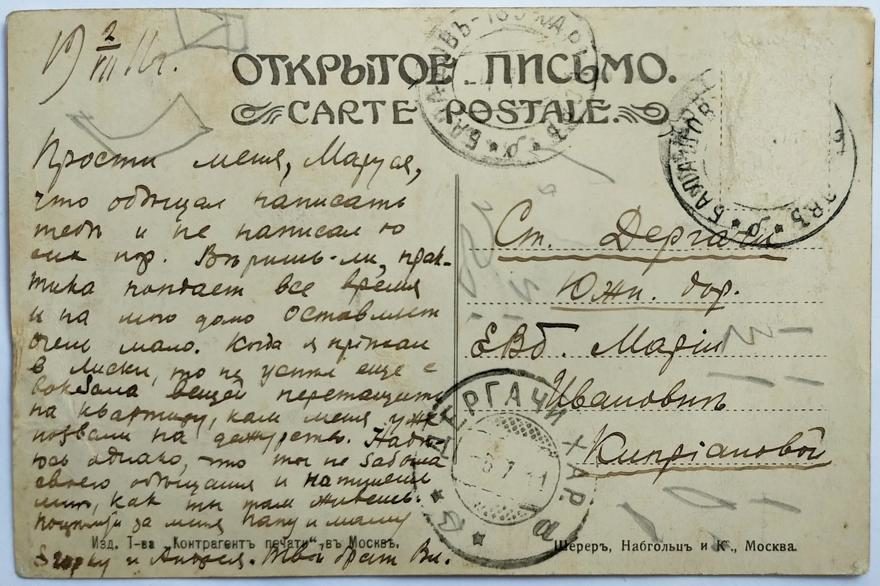 19 2/VII 11 г.
ОТКРЫТОЕ ПИСЬМО.
CARTE POSTALE.
Прости меня, Маруся,
что обѣщал написать
тебѣ и не написал до
сих пор. Вѣришь-ли, прак-
тика поѣдает все время
и на мою долю оставляет
очень мало. Когда я пріѣхал
в Лиски, то не успѣл еще с
вокзала вещей перетащить
на квартиру, как меня уже
позвали на дежурство. Надѣ-
юсь однако, что ты не забыла
своего обѣщания и напишешь
мнѣ, как ты там живешь.
Поцѣлуй за меня папу и маму
и Андрея. Твой брат Вл.
Ст. Дергачи
Южн. дор.
ЕВб. Маріи
Ивановнѣ
Кипріановой
БАЛАШОВЪ ХАРЬКОВЪ
БАЛАШОВЪ
ДЕРГАЧИ ХАР.
7 11
Изд. Т-ва „Контрагентъ печати“, въ Москвѣ.
Шереръ, Набгольцъ и К°, Москва.